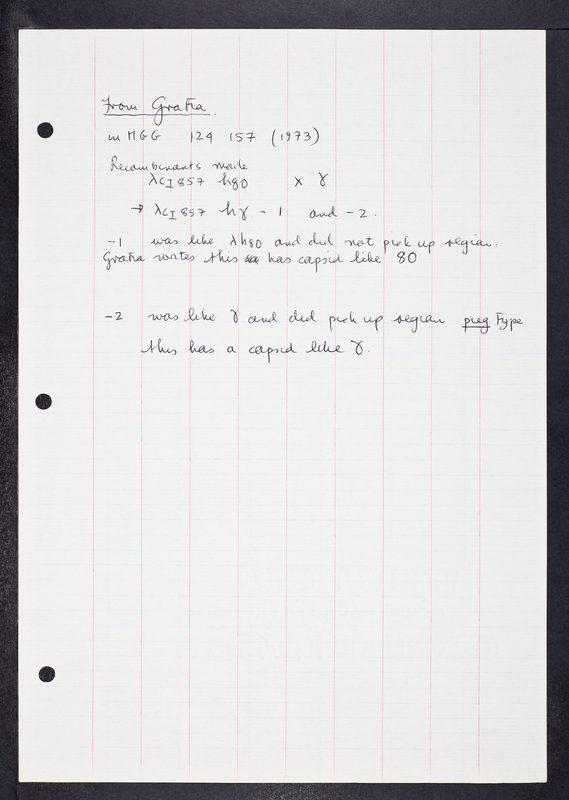 From Gratia.
in MGG 124 157 (1973)
Recombinants made
λcI857 h80 x γ
→ λcI857 hγ - 1 and - 2.
-1 was like λh80 and did not pick up region.
Gratia writes this has capsid like 80
-2 was like γ and did pick up region preg type
this has a capsid like γ.